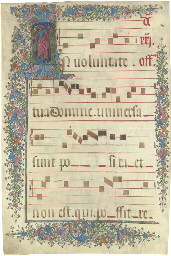 n voluntate. off.
tua Domine. universa
sunt po si ta. et
non est. qui. po ssit. re